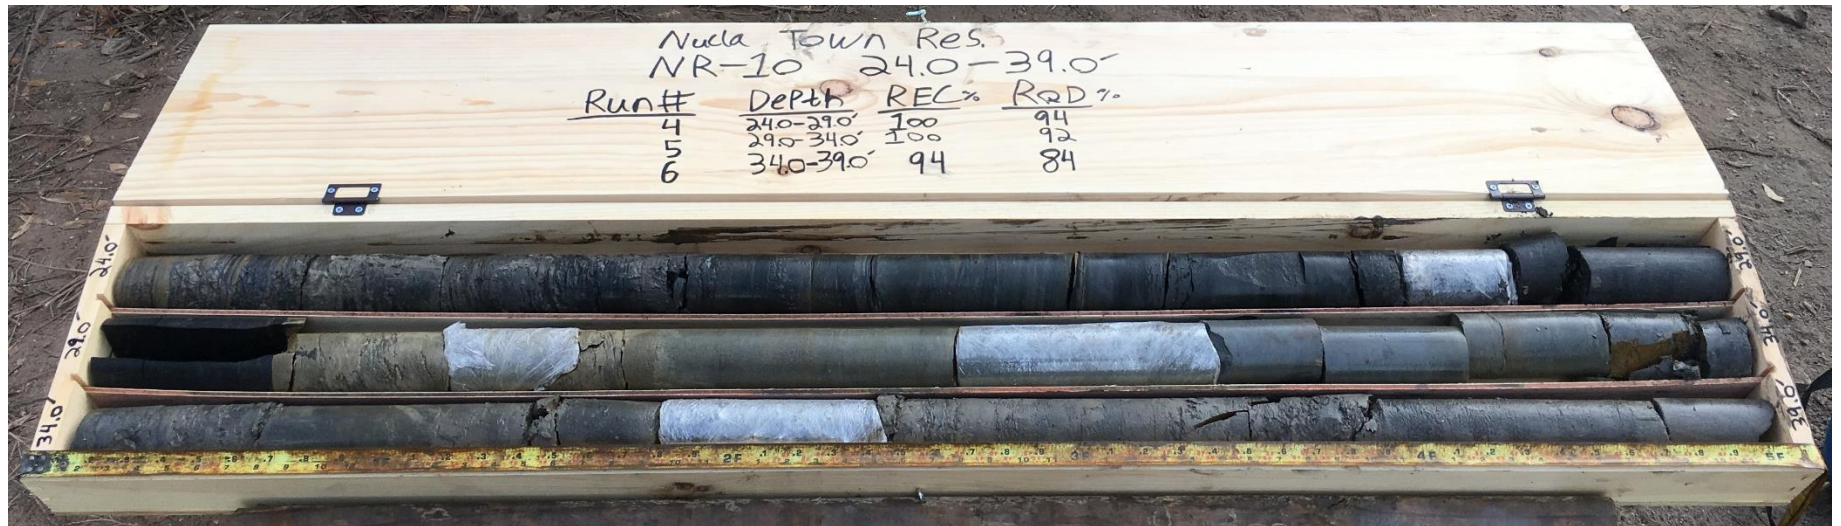 Nucla Town Res.
NR-10 24.0-39.0'
Run# Depth REC% RQD%
4 24.0-29.0' 100 94
5 29.0-34.0' 100 92
6 34.0-39.0' 94 84
24.0' 29.0'
29.0' 34.0'
34.0' 39.0'
2F 3F 4F 5F